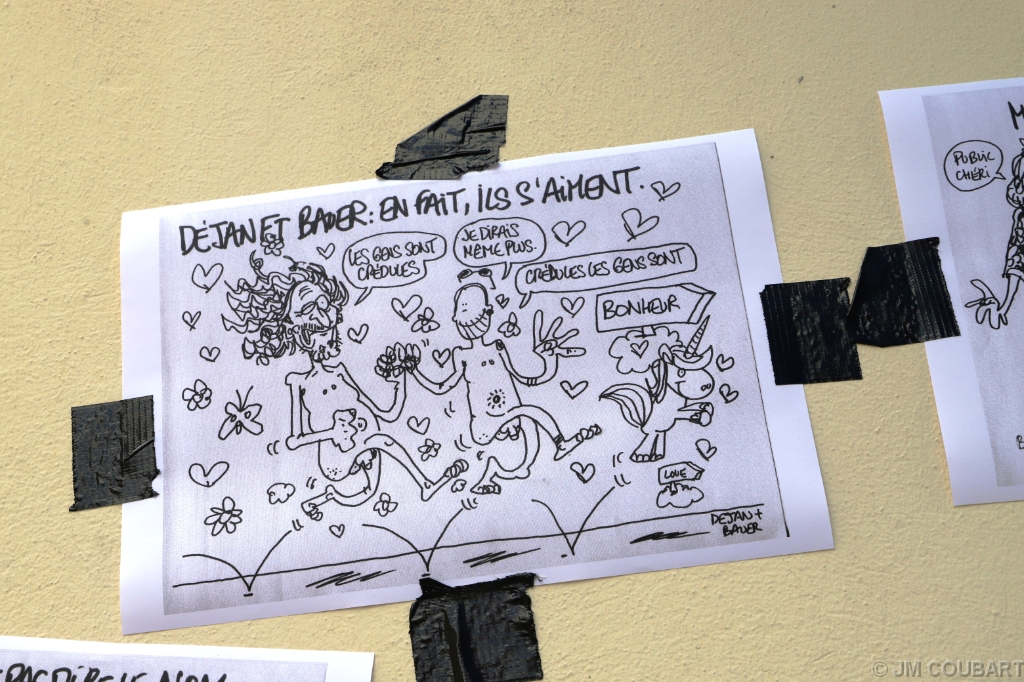 DÉJAN ET BAUER : EN FAIT, ILS S'AIMENT.
LES GENS SONT
CRÉDULES
JE DIRAIS
MÊME PLUS.
CRÉDULES LES GENS SONT
BONHEUR
LOVE
DEJAN +
BAUER
PUBLIC
CHÉRI
© JM COUBART